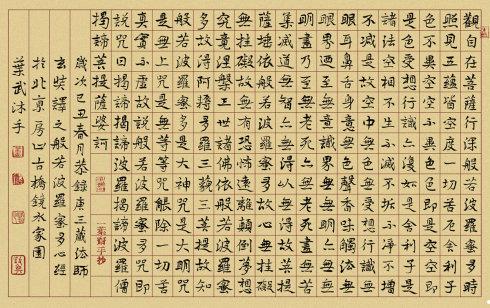 觀自在菩薩行深般若波羅蜜多時
照見五蘊皆空度一切苦厄舍利子
色不異空空不異色色即是空空即
是色受想行識亦復如是舍利子是
諸法空相不生不滅不垢不淨不增
不減是故空中無色無受想行識無
眼耳鼻舌身意無色聲香味觸法無
眼界乃至無意識界無無明亦無無
明盡乃至無老死亦無老死盡無苦
集滅道無智亦無得以無所得故菩提
薩埵依般若波羅蜜多故心無罣礙
無罣礙故無有恐怖遠離顛倒夢想
究竟涅槃三世諸佛依般若波羅蜜
多故得阿耨多羅三藐三菩提故知
般若波羅蜜多是大神咒是大明咒
是無上咒是無等等咒能除一切苦
真實不虛故說般若波羅蜜多咒即
說咒曰揭諦揭諦波羅揭諦波羅僧
揭諦菩提薩婆訶
一葉齋手抄
歲次己丑春月恭錄唐三藏法師
玄奘譯之般若波羅蜜多心經
於北京房山古橋鏡水家園
葉武沐手